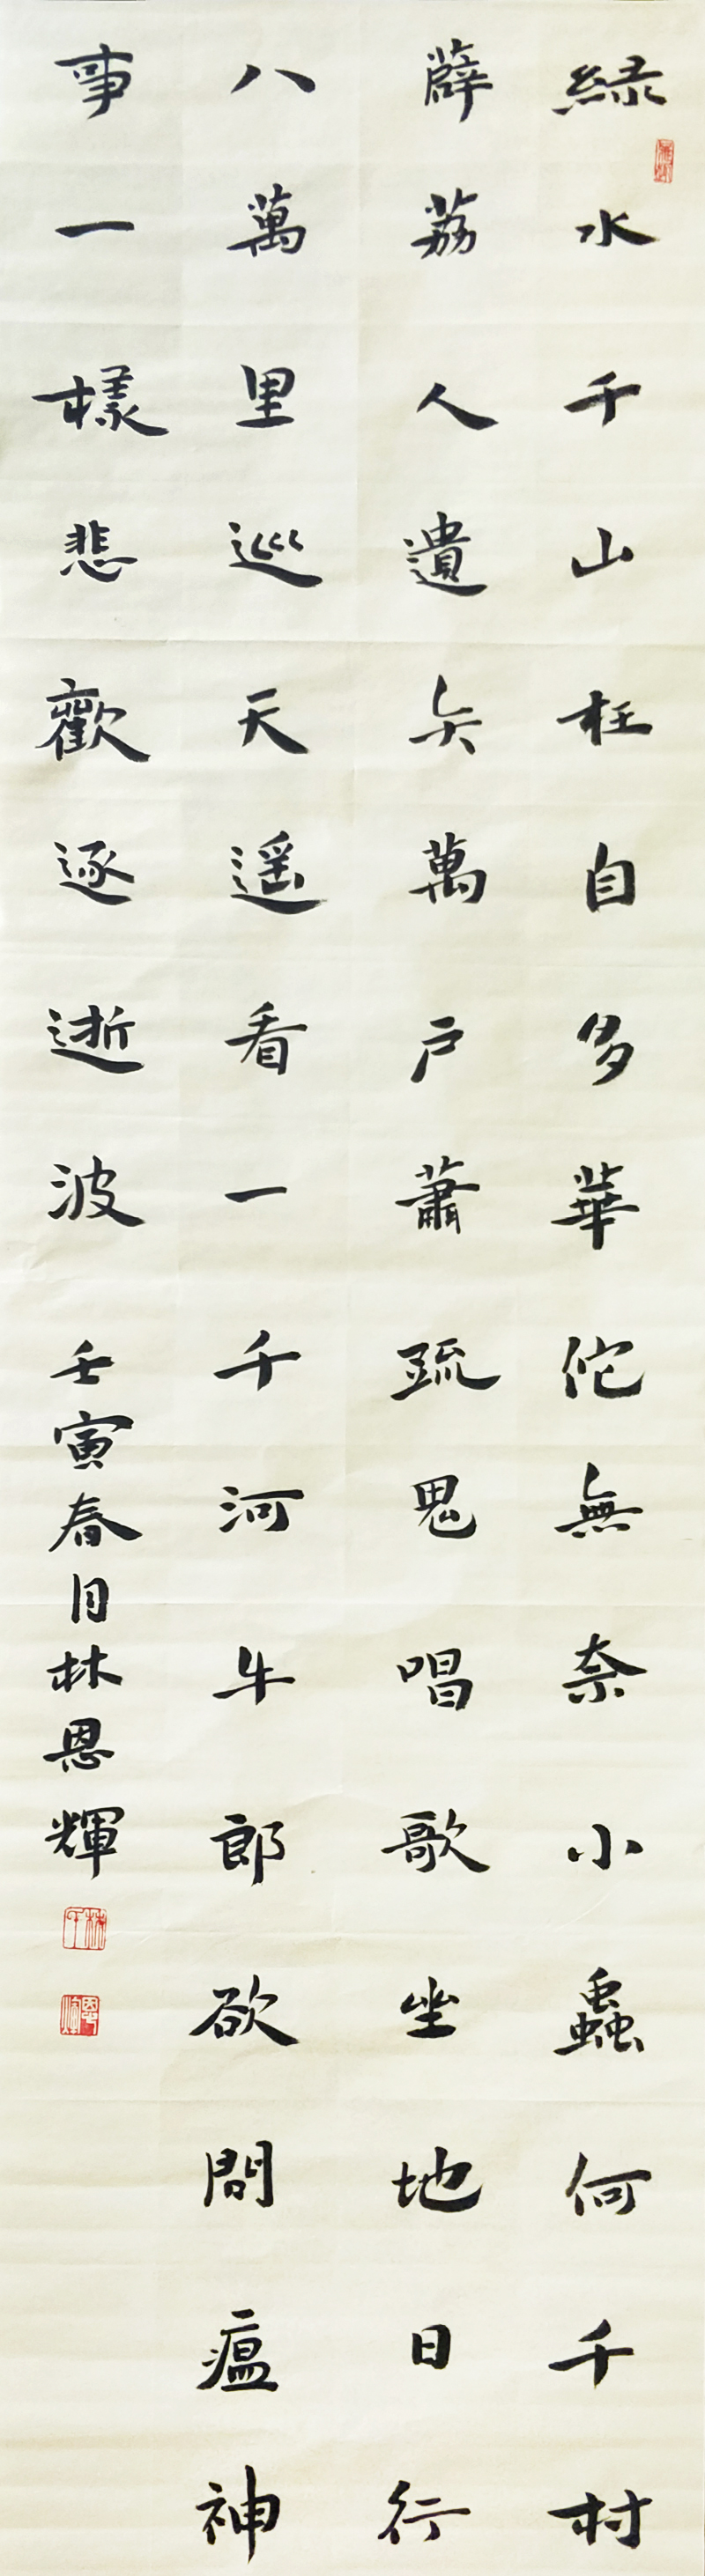 綠水千山枉自多華佗無奈小蟲何千村
薜荔人遺矢萬戶蕭疏鬼唱歌坐地日行
八萬里巡天遙看一千河牛郎欲問瘟神
事一樣悲歡逐逝波
壬寅春月林恩輝
恩輝